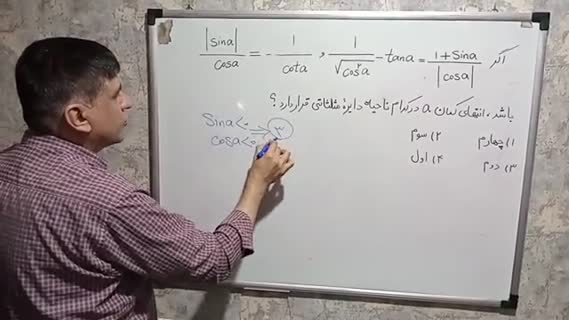 اگر |sina| / cosa = - 1 / cota , 1 / √cos²a - tana = 1+sina / |cosa|
باشد، انتهای کمان a در کدام ناحیه دایرهٔ مثلثاتی قرار دارد ؟
۱) چهارم ۲) سوم
۳) دوم ۴) اول
sina<۰
cosa<۰ ⇒ ۳